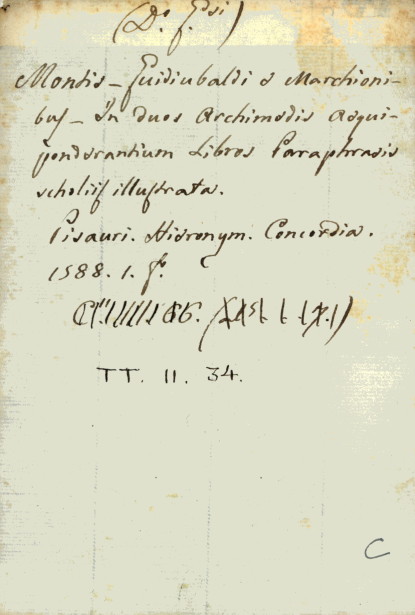 (Do. f. Psi)
Montis – Guidiubaldi e Marchioni-
buſ – In duos Archimedis Aequi-
ponderantium Libros Paraphrasis
scholiiſ illuſtrata.
Pisauri. Hieronym. Concordia.
1588. 1. fo.
TT. 11. 34.
C